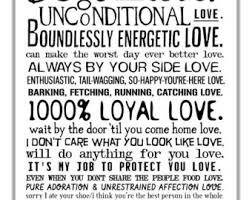 UNCONDITIONAL LOVE.
BOUNDLESSLY ENERGETIC LOVE.
can make the worst day ever better love.
ALWAYS BY YOUR SIDE LOVE.
ENTHUSIASTIC, TAIL-WAGGING, SO-HAPPY-YOU'RE-HERE LOVE.
BARKING, FETCHING, RUNNING, CATCHING LOVE.
1000% LOYAL LOVE.
wait by the door 'til you come home love.
I DON'T CARE WHAT YOU LOOK LIKE LOVE,
will do anything for you love.
IT'S MY JOB TO PROTECT YOU LOVE.
EVEN WHEN YOU DONT SHARE THE PEOPLE FOOD LOVE.
PURE ADORATION & UNRESTRAINED AFFECTION LOVE.
sorry I ate your shoe/i think you're the best person in the whole